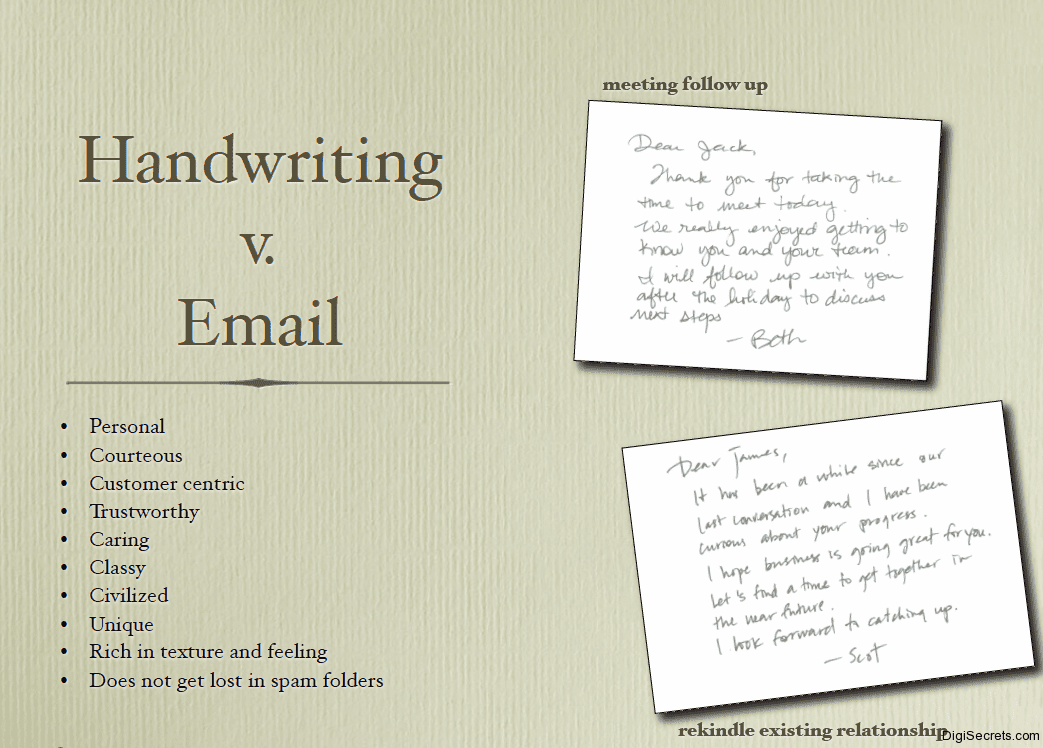 Handwriting
v.
Email
• Personal
• Courteous
• Customer centric
• Trustworthy
• Caring
• Classy
• Civilized
• Unique
• Rich in texture and feeling
• Does not get lost in spam folders
meeting follow up
Dear Jack,
Thank you for taking the
time to meet today.
We really enjoyed getting to
know you and your team.
I will follow up with you
after the holiday to discuss
next steps
— Beth
Dear James,
It has been a while since our
last conversation and I have been
curious about your progress.
I hope business is going great for you.
Let's find a time to get together in
the near future.
I look forward to catching up.
— Scot
rekindle existing relationship
DigiSecrets.com